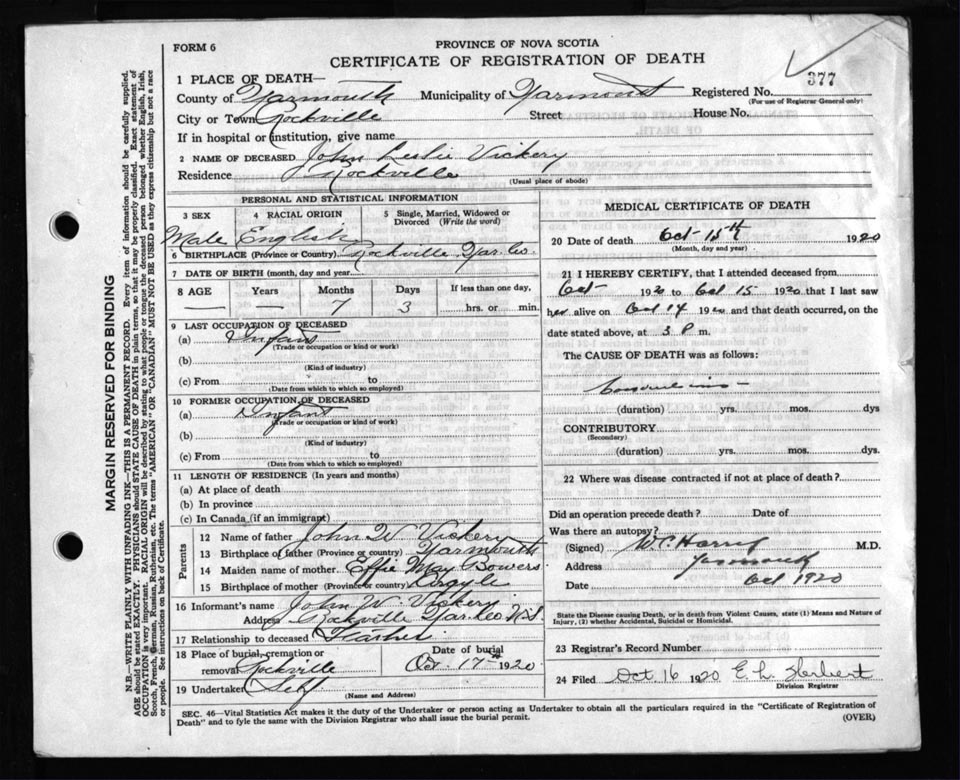 FORM 6
PROVINCE OF NOVA SCOTIA
CERTIFICATE OF REGISTRATION OF DEATH
377
1 PLACE OF DEATH—
County of Yarmouth Municipality of Yarmouth Registered No.
(For use of Registrar General only)
City or Town Rockville Street House No.
If in hospital or institution, give name
2 NAME OF DECEASED John Leslie Vickery
Residence Rockville
(Usual place of abode)
PERSONAL AND STATISTICAL INFORMATION
3 SEX 4 RACIAL ORIGIN 5 Single, Married, Widowed or Divorced (Write the word)
Male English
6 BIRTHPLACE (Province or Country) Rockville Yar. Co.
7 DATE OF BIRTH (month, day and year)
8 AGE Years Months Days If less than one day,
— — 7 3 hrs. or min.
9 LAST OCCUPATION OF DECEASED
(a) Infant
(Trade or occupation or kind or work)
(b)
(Kind of industry)
(c) From to
(Date from which to which so employed)
10 FORMER OCCUPATION OF DECEASED
(a) Infant
(Trade or occupation or kind of work)
(b)
(Kind of industry)
(c) From to
(Date from which to which so employed)
11 LENGTH OF RESIDENCE (In years and months)
(a) At place of death
(b) In province
(c) In Canada (if an immigrant)
Parents
12 Name of father John W Vickery
13 Birthplace of father (Province or country) Yarmouth
14 Maiden name of mother Effie May Bowers
15 Birthplace of mother (Province or country) Argyle
16 Informant's name John W. Vickery
Address Rockville Yar. Co. N.S
17 Relationship to deceased Father
18 Place of burial, cremation or removal Rockville
Date of burial Oct. 17th 1920
19 Undertaker Self
(Name and Address)
MEDICAL CERTIFICATE OF DEATH
20 Date of death Oct- 15th 1920
(Month, day and year)
21 I HEREBY CERTIFY, that I attended deceased from
Oct- 1920 to Oct 15 1920 that I last saw
alive on Oct 14 1920 and that death occurred, on the
date stated above, at 3 P m.
The CAUSE OF DEATH was as follows:
(duration) yrs. mos. dys
CONTRIBUTORY
(Secondary)
(duration) yrs. mos. dys.
22 Where was disease contracted if not at place of death?
Did an operation precede death? Date of
Was there an autopsy?
(Signed) W. C. M.D.
Address Yarmouth
Date Oct 1920
State the Disease causing Death, or in death from Violent Causes, state (1) Means and Nature of
Injury, (2) whether Accidental, Suicidal or Homicidal.
23 Registrar's Record Number
24 Filed Oct. 16 1920 E. L. Herbert
Division Registrar
SEC. 46—Vital Statistics Act makes it the duty of the Undertaker or person acting as Undertaker to obtain all the particulars required in the "Certificate of Registration of
Death" and to fyle the same with the Division Registrar who shall issue the burial permit.
(OVER)
MARGIN RESERVED FOR BINDING
N.B.—WRITE PLAINLY WITH UNFADING INK—THIS IS A PERMANENT RECORD. Every item of information should be carefully supplied.
AGE should be stated EXACTLY. PHYSICIANS should STATE CAUSE OF DEATH in plain terms, so that it may be properly classified. Exact statement of
OCCUPATION is very important. RACIAL ORIGIN will be described by stating to what people or tongue the deceased person belonged whether English, Irish,
Scotch, French, German, Russian, Ruthenian, etc. The terms "AMERICAN" OR "CANADIAN" MUST NOT BE USED as they express citizenship but not a race
or people. See instructions on back of Certificate.